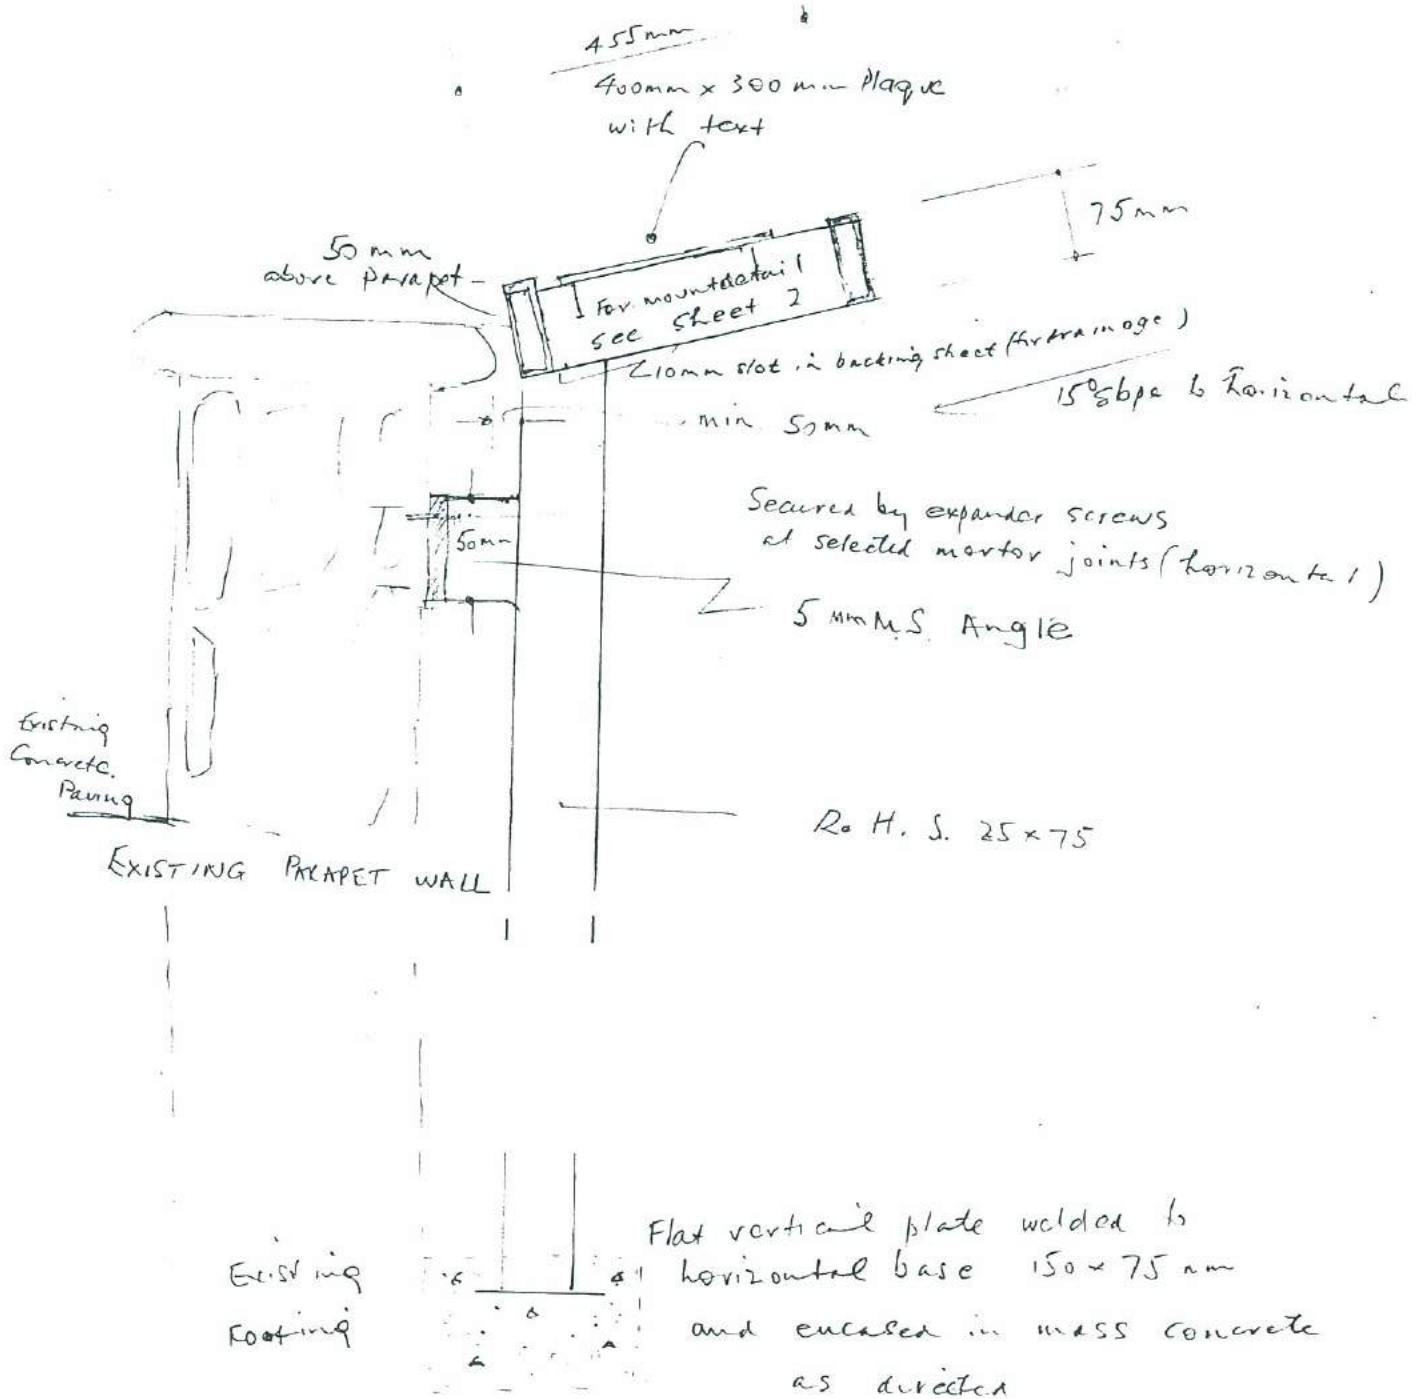 455mm
400mm x 300mm Plaque
with text
75mm
50mm
above parapet
For mount detail
see sheet 2
10mm slot in backing sheet (for drainage)
15° slope to horizontal
min 50mm
Secured by expander screws
at selected mortor joints (horizontal)
50mm
5mm M.S. Angle
Existing
Concrete.
Paving
R.H.S. 25x75
EXISTING PARAPET WALL
Flat vertical plate welded to
horizontal base 150x75mm
and encased in mass concrete
as directed
Existing
Footing